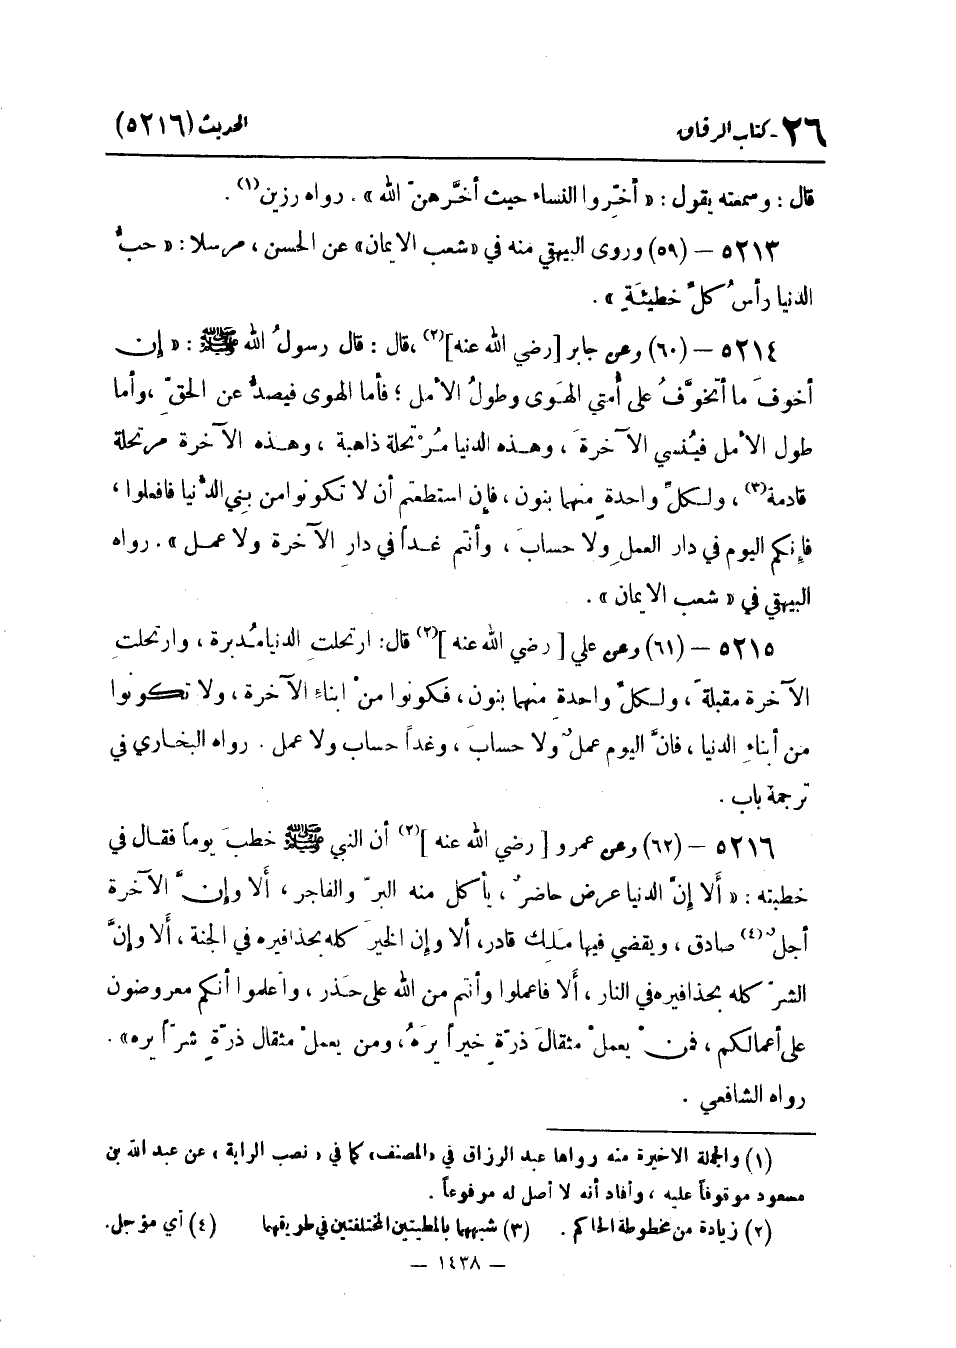 ٢٦ - كتاب الرقاق الحديث (٥٢١٦)
قال : وسمعته يقول : « أخّروا النساء حيث أخَّرهنّ الله » . رواه رزين(١) .
٥٢١٣ – (٥٩) وروى البيهقي منه في «شعب الايمان» عن الحسن ، مرسلا : « حبُّ
الدنيا رأسُ كلِّ خطيئَةٍ » .
٥٢١٤ – (٦٠) وعن جابر [رضي الله عنه](٢) ،قال : قال رسولُ الله ﷺ : « إن
أخوفَ ما أتخوَّفُ على أُمتي الهَوى وطولُ الأمل ؛ فأما الهوى فيصدُّ عن الحقّ ،وأما
طول الأمل فيُنسي الآخرةَ ، وهذه الدنيا مُرْتحلة ذاهبة ، وهذه الآخرة مرتحلة
قادمة(٣) ، ولكلِّ واحدةٍ منهما بنون ، فإن استطعتم أن لا تكونوا من بني الدُّنيا فافعلوا ،
فإنكم اليوم في دار العملِ ولا حسابَ ، وأنتم غداً في دارِ الآخرة ولا عمل » . رواه
البيهقي في « شعب الايمان » .
٥٢١٥ – (٦١) وعن علي [ رضي الله عنه ](٢) قال: ارتحلتِ الدنيا مُدبرة ، وارتحلتِ
الآخرة مقبلةً ، ولكلِّ واحدة منهما بنون ، فكونوا منْ ابناءِ الآخرة ، ولا تكونوا
من أبناءِ الدنيا ، فانَّ اليوم عملٌ ولا حسابَ ، وغداً حساب ولا عمل . رواه البخاري في
ترجمة باب .
٥٢١٦ – (٦٢) وعن عمرو [ رضي الله عنه ](٢) أن النبي ﷺ خطبَ يوماً فقال في
خطبته : « أَلا إِنَّ الدنيا عرض حاضرٌ ، يأكل منه البرّ والفاجر ، أَلا وإنَّ الآخرة
أجلٌ(٤) صادق ، ويقضي فيها مَلِك قادر، أَلا وإن الخيرَ كله بحذافيره في الجنة ، أَلا وإنَّ
الشرّ كله بحذافيره في النار ، أَلا فاعملوا وأنتم من الله على حَذر ، واعلموا أنكم معروضون
على أعمالكم ، فمنْ يعملْ مثقالَ ذرّةٍ خيراً يرَهُ ، ومن يعملْ مثقال ذرّةٍ شرّاً يره» .
رواه الشافعي .
(١) والجملة الاخيرة منه رواها عبد الرزاق في «المصنف» كما في « نصب الراية » عن عبد الله بن
مسعود موقوفاً عليه ، وأفاد أنه لا أصل له مرفوعاً .
(٢) زيادة من مخطوطة الحاكم . (٣) شبهها بالمطيتين المختلفتين في طريقهما (٤) أي مؤجل.
— ١٤٣٨ —